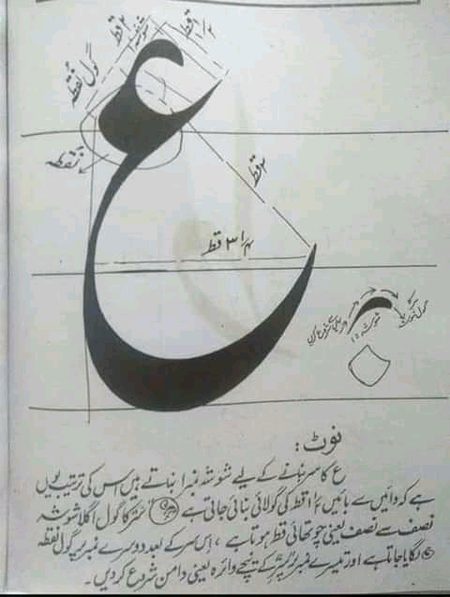 ۲ قط
گول نقطہ
نقطہ
۲ قط
۳ ۱/۴ قط
شوشہ
نوٹ:
ع کا سر بنانے کے لیے شوشہ نمبر ا بناتے ہیں اس کی ترتیب یوں
ہے کہ دائیں سے بائیں ۱/۲ قط کی گولائی بنائی جاتی ہے کا گول اگلا شوشہ
نصف سے نصف یعنی چوتھائی قط ہوتا ہے ، اس سر کے بعد دوسرے نمبر پر گول نقطہ
لگایا جاتا ہے اور تیسرے نمبر پر کے نیچے دائرہ یعنی دامن شروع کر دیں ۔